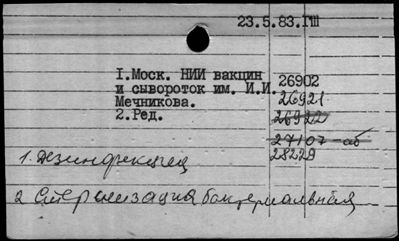 23.5.83.ГШ
1.Моск. НИИ вакцин
и сывороток им. И.И.
Мечникова.
2.Ред.
26902
26921
26922
27107-аб
28229
1. дезинфекция
2 Стерилизация бактериальная